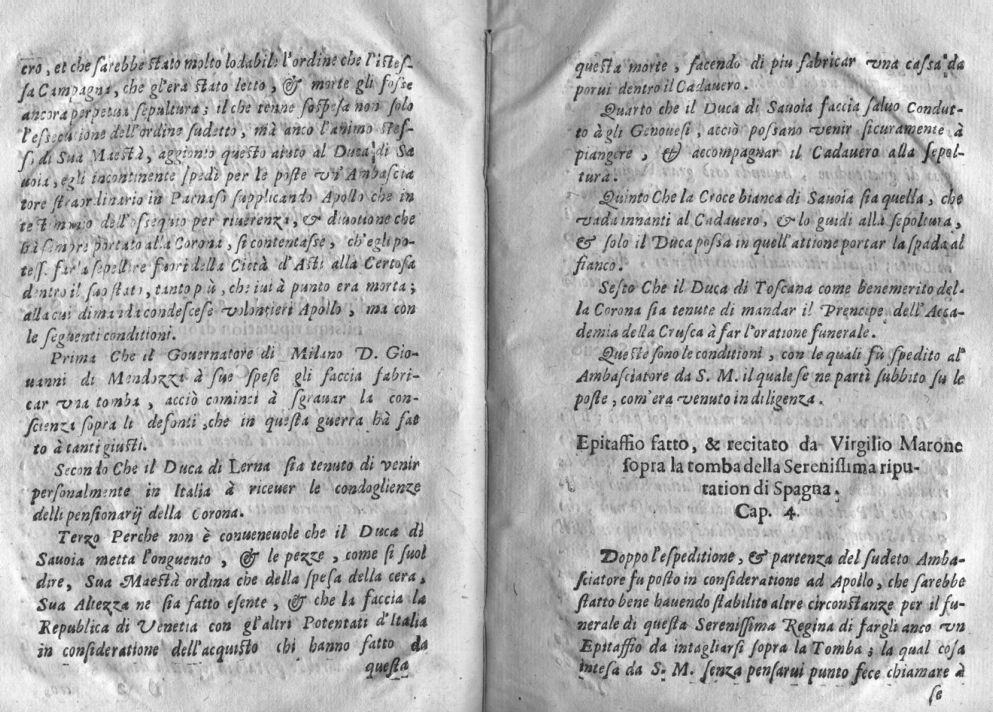 cro, et che sarebbe stato molto lodabile l'ordine che l'istes-
sa Campagna, che gl'era stato letto, & morte gli fosse
ancora perpetua sepultura; il che tenne sospesa non solo
l'essecutione dell'ordine sudetto, mà anco l'animo stes-
so di Sua Maestà, aggionto questo aiuto al Duca di Sa
uoia, egli incontinente spedì per le poste vn' Ambascia
tore straordinario in Parnaso supplicando Apollo che in
testimonio dell'ossequio per riuerenza, & diuotione che
hà sempre portato alla Corona, si contentasse, ch'egli po-
tesse far'a sepellire fuori della Città d'Asti alla Certosa
dentro il suo stato, tanto più, che iui à punto era morta;
alla cui dimanda condescese volontieri Apollo, ma con
le seguenti conditioni.
Prima Che il Gouernatore di Milano D. Gio-
uanni di Mendozza à sue spese gli faccia fabri-
car vna tomba, acciò cominci à sgrauar la con-
scienza sopra li defonti, che in questa guerra hà fat
to à tanti giusti.
Secondo Che il Duca di Lerna sia tenuto di venir
personalmente in Italia à riceuer le condoglienze
delli pensionarij della Corona.
Terzo Perche non è conueneuole che il Duca di
Sauoia metta l'onguento, & le pezze, come si suol
dire, Sua Maestà ordina che della spesa della cera,
Sua Altezza ne sia fatto esente, & che la faccia la
Republica di Venetia con gl'altri Potentati d'Italia
in consideratione dell'acquisto chi hanno fatto da
questa
questa morte, facendo di piu fabricar vna cassa da
porui dentro il Cadauero.
Quarto che il Duca di Sauoia faccia saluo Condut-
to à gli Genouesi, acciò possano venir sicuramente à
piangere, & accompagnar il Cadauero alla sepol-
tura.
Quinto Che la Croce bianca di Sauoia sia quella, che
vada innanti al Cadauero, & lo guidi alla sepoltura,
& solo il Duca possa in quell'attione portar la spada al
fianco.
Sesto Che il Duca di Toscana come benemerito del-
la Corona sia tenute di mandar il Prencipe dell'Acca-
demia della Crusca à far l'oratione funerale.
Queste sono le conditioni, con le quali fù spedito al'
Ambasciatore da S. M. il quale se ne partì subbito su le
poste, com'era venuto in diligenza.
Epitaffio fatto, & recitato da Virgilio Marone
sopra la tomba della Serenissima ripu-
tation di Spagna.
Cap. 4.
Doppo l'espeditione, & partenza del sudeto Amba-
sciatore fu posto in consideratione ad Apollo, che sarebbe
statto bene hauendo stabilito altre circonstanze per il fu-
nerale di questa Serenissima Regina di fargli anco vn
Epitaffio da intagliarsi sopra la Tomba; la qual cosa
intesa da S. M. senza pensarui punto fece chiamare à
se